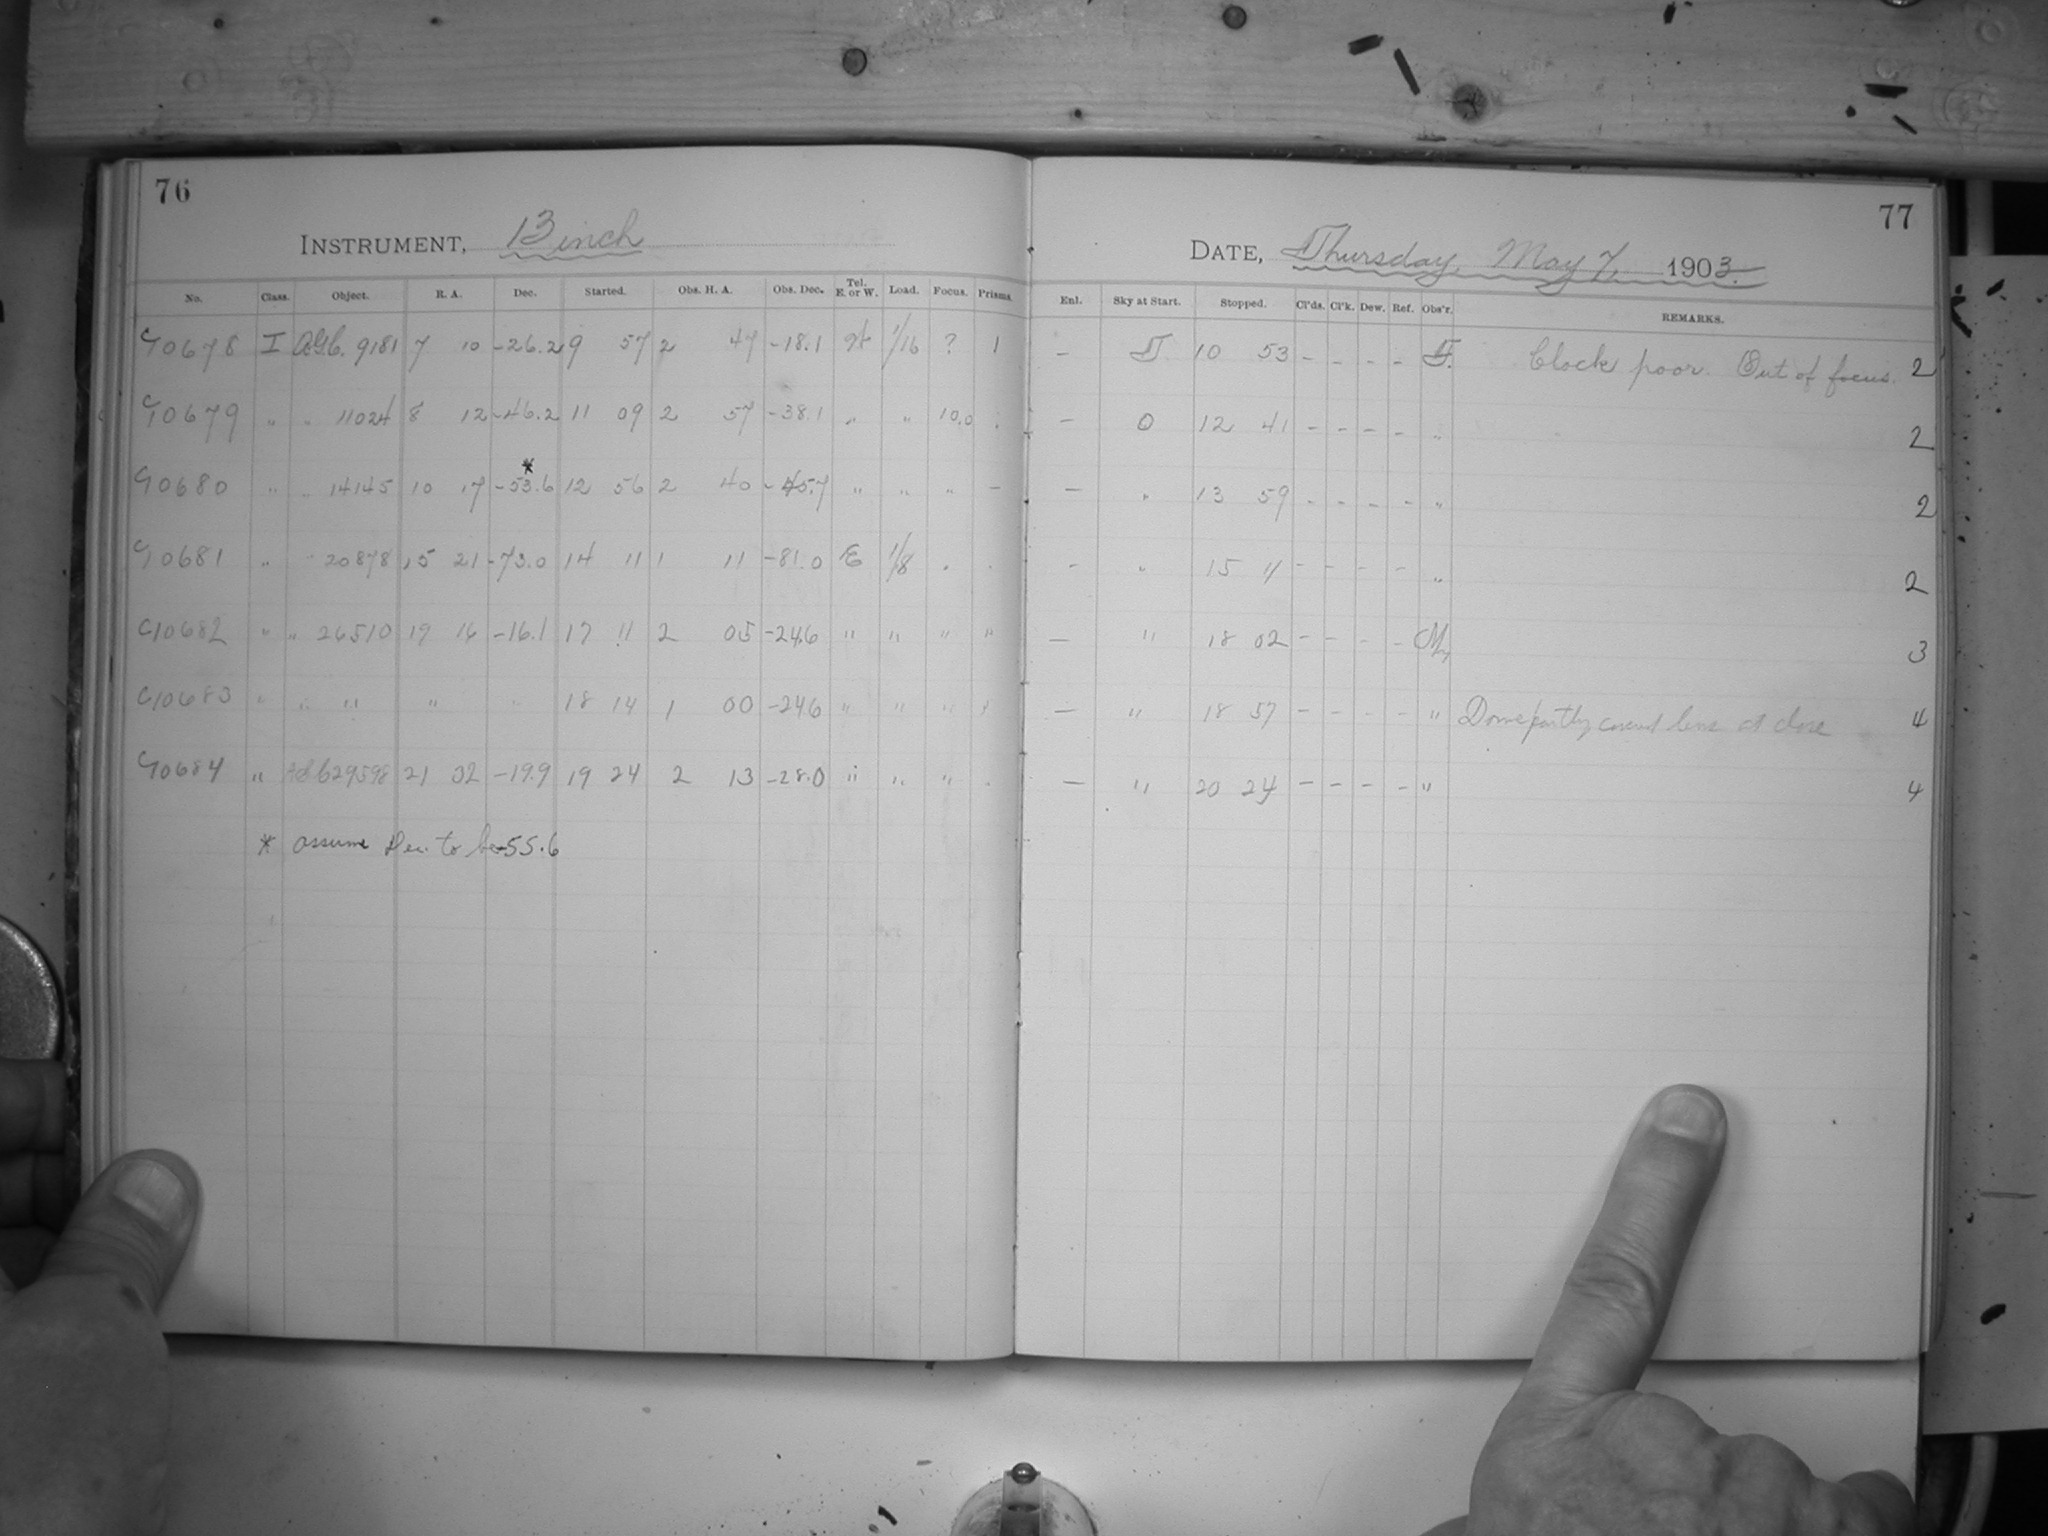 76
INSTRUMENT, 13 inch
No. Class. Object. R. A. Dec. Started. Obs. H. A. Obs. Dec. Tel. E. or W. Load. Focus. Prisms.
10678 I AGC. 9181 7 10 -26.2 9 57 2 47 -18.1 W 1/16 ? 1
10679 " " 11024 8 12 -46.2 11 09 2 57 -38.1 " " 10.0 "
10680 " " 14145 10 17 -53.6* 12 56 2 40 -45.7 " " " -
10681 " " 20878 15 21 -73.0 14 11 1 11 -81.0 E 1/8 " "
10682 " " 26510 19 16 -16.1 17 11 2 05 -24.6 " " " "
10683 " " " " " 18 14 1 00 -24.6 " " " "
10684 " AGC 29598 21 02 -19.9 19 24 2 13 -28.0 " " " "
* assume Dec. to be -55.6
77
DATE, Thursday, May 7, 1903.
Enl. Sky at Start. Stopped. Cl'ds. Cl'k. Dew. Ref. Obs'r. REMARKS.
- 10 53 - - - - Clock poor. Out of focus. 2
- 0 12 41 - - - - " 2
- " 13 59 - - - - " 2
- " 15 11 - - - - " 2
- " 18 02 - - - - 3
- " 18 57 - - - - " Dome partly covered lens at close 4
- " 20 24 - - - - " 4